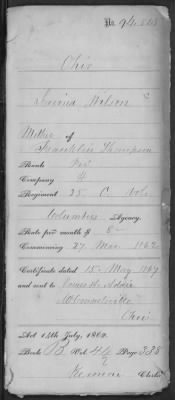 No. 94.
Ohio
Wilson
Mother of
Franklin Thompson
Rank Pvt
Company H
Regiment 25 C Vols
Columbus Agency.
Rate per month $ 8
Commencing 27. Mar 1862
Certificate dated 15 May 1867
and sent to
Ohio
Act 14th July, 1862.
Book B Vol. 46 Page 338
2
Clerk.